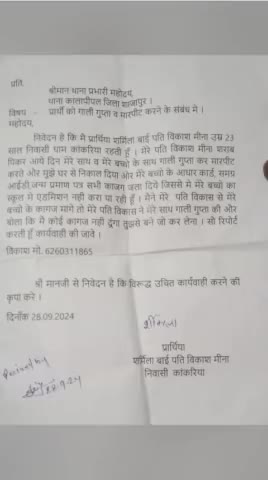 प्रति.
श्रीमान थाना प्रभारी महोदय,
थाना कालापीपल जिला शाजापुर ।
विषय - प्रार्थी को गाली गुप्ता व मारपीट करने के संबंध मे ।
महोदय,
निवेदन है कि मै प्रार्थिया शर्मिला बाई पति विकाश मीना उम्र 23
साल निवासी ग्राम कांकरिया रहती हूँ । मेरे पति विकाश मीना शराब
पिकर आये दिन मेरे साथ व मेरे बच्चो के साथ गाली गुप्ता कर मारपीट
करते और मुझे घर से निकाल दिया और मेरे बच्चो के आधार कार्ड, समग्र
आईडी,जन्म प्रमाण पत्र सभी कागज जला दिये जिससे मे मेरे बच्चो का
स्कूल मे एडमिशन नही करा पा रही हूँ । मैने मेरे पति विकास से मेरे
बच्चो के कागज मांगे तो मेरे पति विकास ने मेरे साथ गाली गुप्ता की और
बोला कि मै कोई कागज नही दूंगा तुझसे बने जो कर लेना । सो रिपोर्ट
करती हूँ कार्यवाही की जावे ।
विकाश मो. 6260311865
श्री मानजी से निवेदन है कि विरूद्ध उचित कार्यवाही करने की
कृपा करे ।
दिनाँक 28.09.2024
शर्मिला
प्रार्थिया
शर्मिला बाई पति विकाश मीना
निवासी कांकरिया